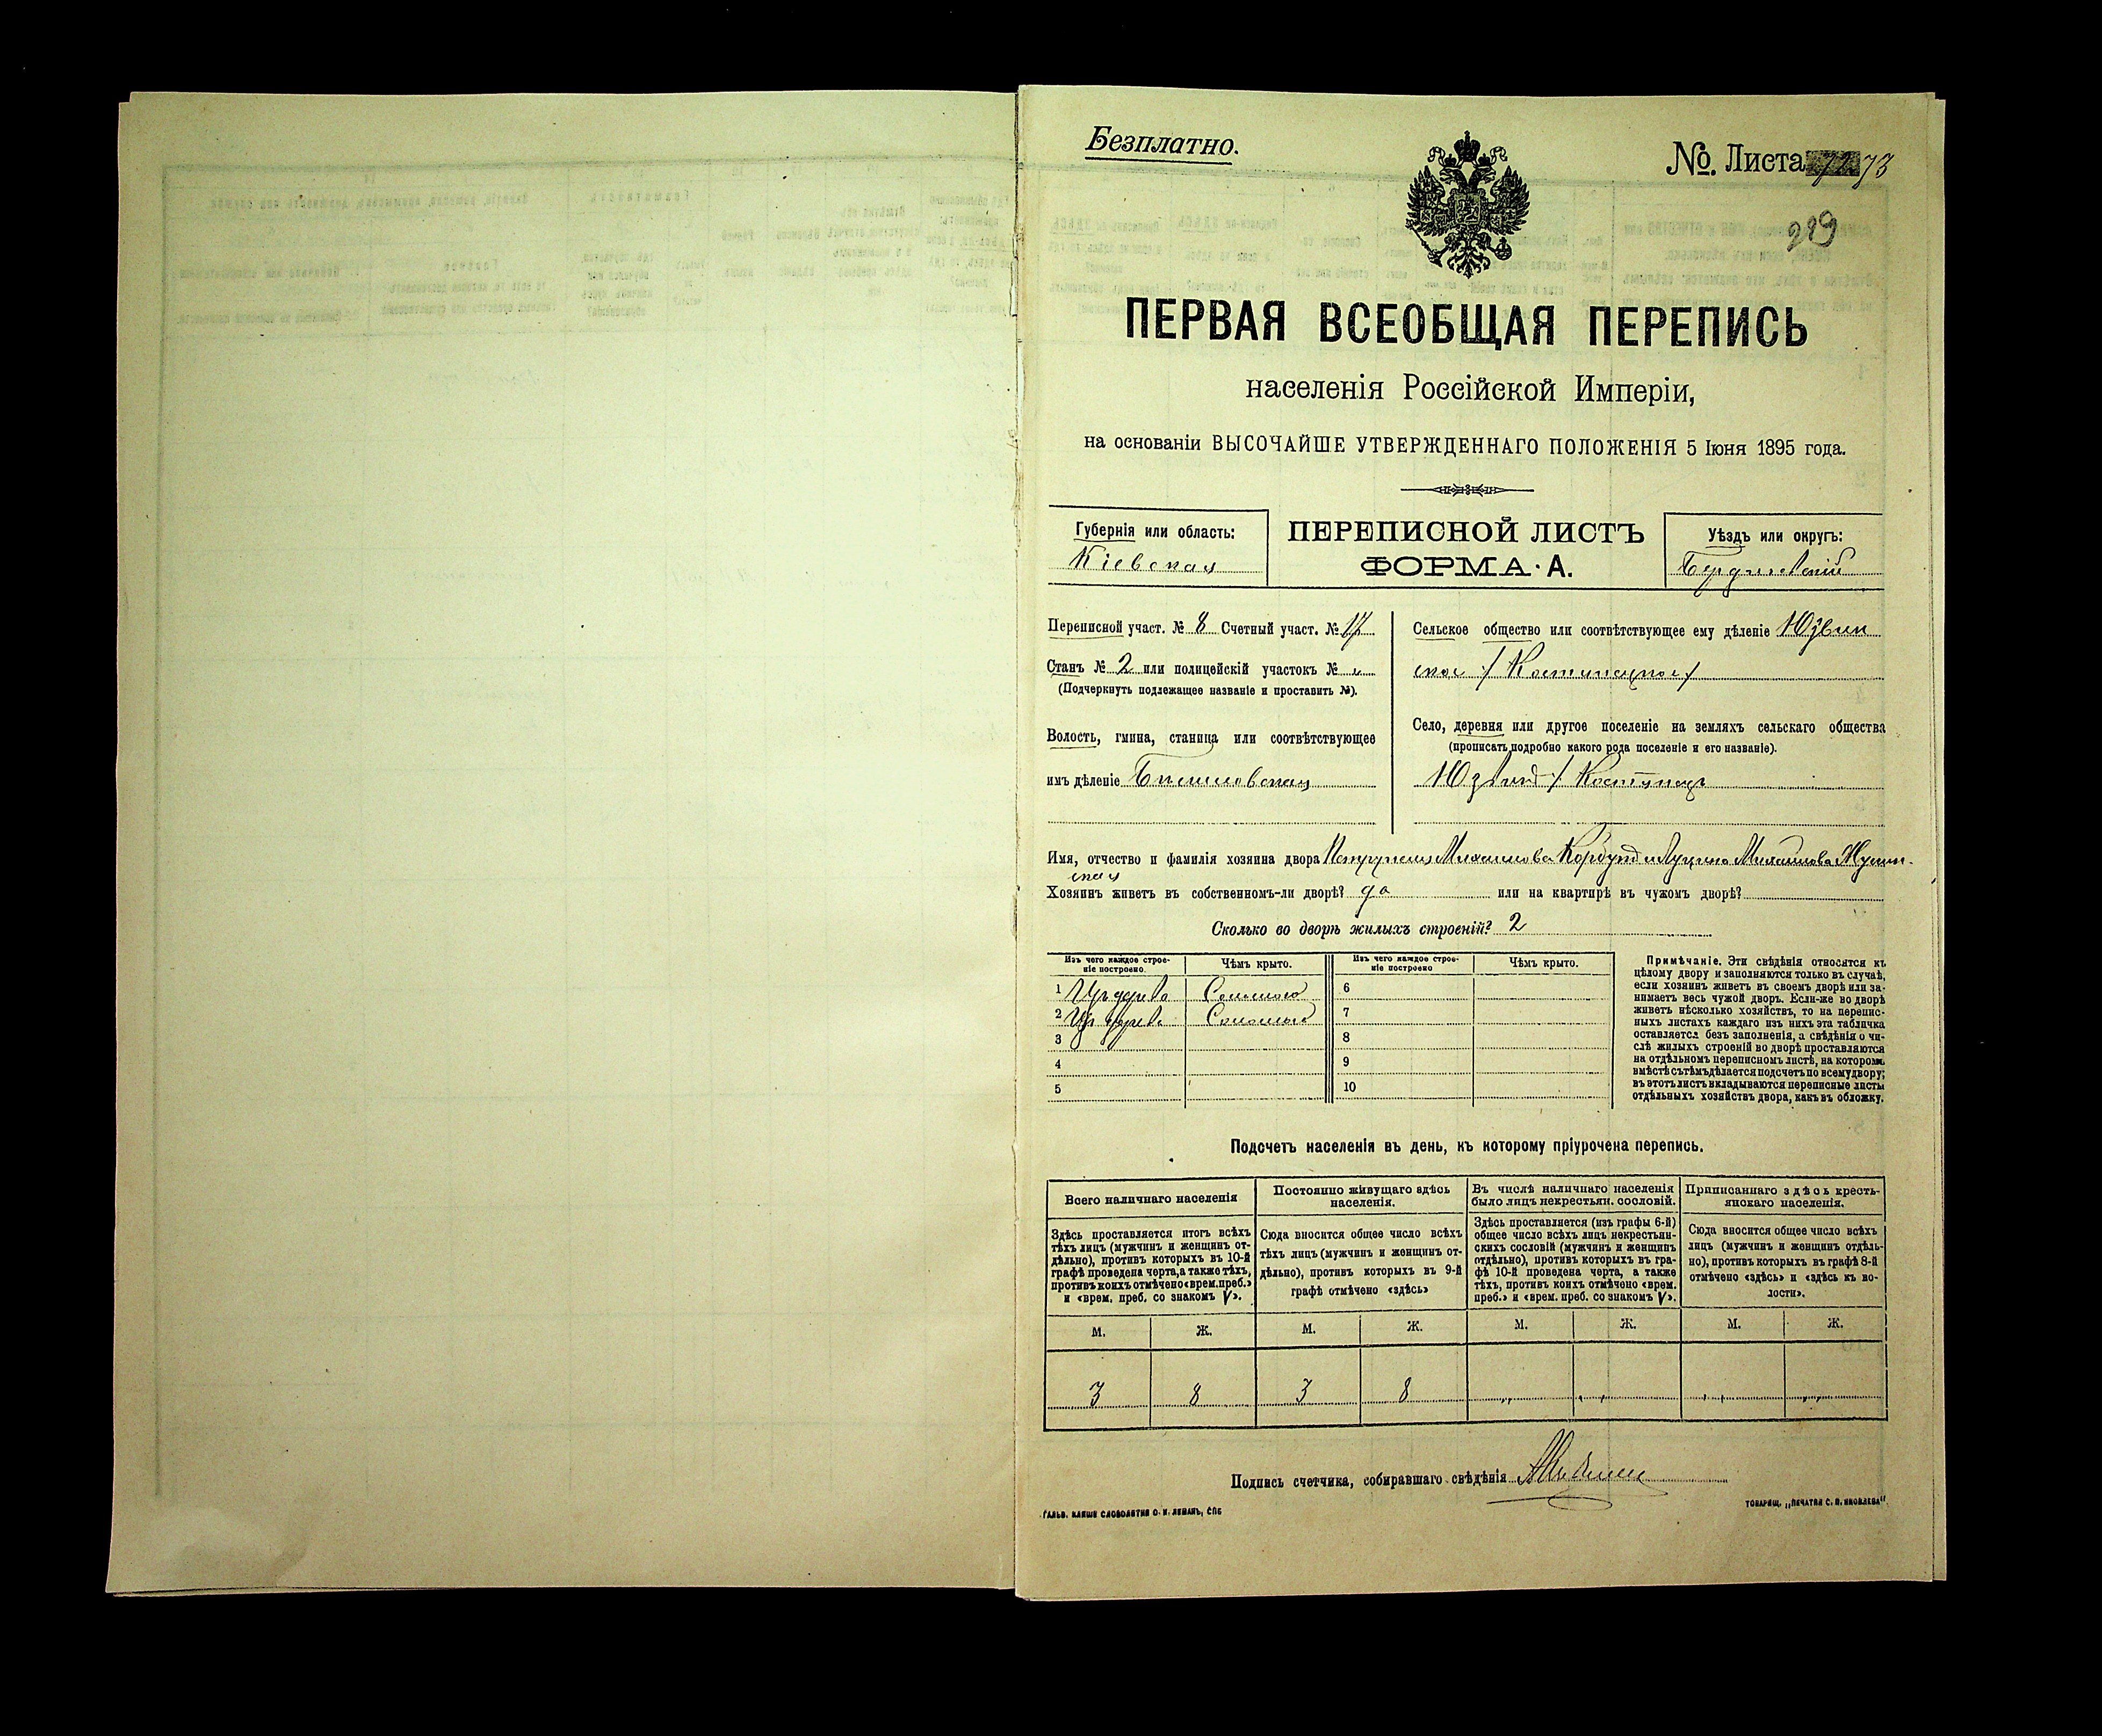 Безплатно.
№. Листа 73
229
ПЕРВАЯ ВСЕОБЩАЯ ПЕРЕПИСЬ
населенія Россійской Имперіи,
на основаніи ВЫСОЧАЙШЕ УТВЕРЖДЕННАГО ПОЛОЖЕНІЯ 5 Іюня 1895 года.
Губернія или область:
Кіевская
ПЕРЕПИСНОЙ ЛИСТЪ
ФОРМА · А.
Уѣздъ или округъ:
Бердичевскій
Переписной участ. № 8 Счетный участ. № 17
Станъ № 2 или полицейскій участокъ №
(Подчеркнуть подлежащее названіе и проставить №).
Волость, гмина, станица или соотвѣтствующее
имъ дѣленіе
Сельское общество или соотвѣтствующее ему дѣленіе Юзвин
ское
Село, деревня или другое поселеніе на земляхъ сельскаго общества
(прописать подробно какого рода поселеніе и его названіе).
Юзвинъ
Имя, отчество и фамилія хозяина двора Михаилова Михаилова
ская
Хозяинъ живетъ въ собственномъ-ли дворѣ? да или на квартирѣ въ чужомъ дворѣ?
Сколько во дворѣ жилыхъ строеній? 2
Изъ чего каждое строеніе построено.
Чѣмъ крыто.
Изъ чего каждое строеніе построено
Чѣмъ крыто.
1 Изъ дерева Соломою 6
2 Изъ дерева Соломою 7
3 8
4 9
5 10
Примѣчаніе. Эти свѣдѣнія относятся къ
цѣлому двору и заполняются только въ случаѣ,
если хозяинъ живетъ въ своемъ дворѣ или за-
нимаетъ весь чужой дворъ. Если-же во дворѣ
живетъ нѣсколько хозяйствъ, то на перепис-
ныхъ листахъ каждаго изъ нихъ эта табличка
оставляется безъ заполненія, а свѣдѣнія о чи-
слѣ жилыхъ строеній во дворѣ проставляются
на отдѣльномъ переписномъ листѣ, на которомъ
вмѣстѣ съ тѣмъ дѣлается подсчетъ по всему двору;
въ этотъ листъ вкладываются переписные листы
отдѣльныхъ хозяйствъ двора, какъ въ обложку.
Подсчетъ населенія въ день, къ которому пріурочена перепись.
Всего наличнаго населенія
Здѣсь проставляется итогъ всѣхъ
тѣхъ лицъ (мужчинъ и женщинъ от-
дѣльно), противъ которыхъ въ 10-й
графѣ проведена черта, а также тѣхъ,
противъ коихъ отмѣчено «врем. преб.»
и «врем. преб. со знакомъ V».
Постоянно живущаго здѣсь
населенія.
Сюда вносится общее число всѣхъ
тѣхъ лицъ (мужчинъ и женщинъ от-
дѣльно), противъ которыхъ въ 9-й
графѣ отмѣчено «здѣсь»
Въ числѣ наличнаго населенія
было лицъ некрестьян. сословій.
Здѣсь проставляется (изъ графы 6-й)
общее число всѣхъ лицъ некрестьян-
скихъ сословій (мужчинъ и женщинъ
отдѣльно), противъ которыхъ въ гра-
фѣ 10-й проведена черта, а также
тѣхъ, противъ коихъ отмѣчено «врем.
преб.» и «врем. преб. со знакомъ V».
Приписаннаго здѣсь кресть-
янскаго населенія.
Сюда вносится общее число всѣхъ
лицъ (мужчинъ и женщинъ отдѣль-
но), противъ которыхъ въ графѣ 8-й
отмѣчено «здѣсь» и «здѣсь къ во-
лости».
М. Ж. М. Ж. М. Ж. М. Ж.
3 8 3 8
Подпись счетчика, собиравшаго свѣдѣнія
ГАЛЬВ. КЛИШЕ СЛОВОЛИТНИ О. И. ЛЕМАНЪ, СПБ
ТОВАРИЩ. „ПЕЧАТНЯ С. П. ЯКОВЛЕВА"